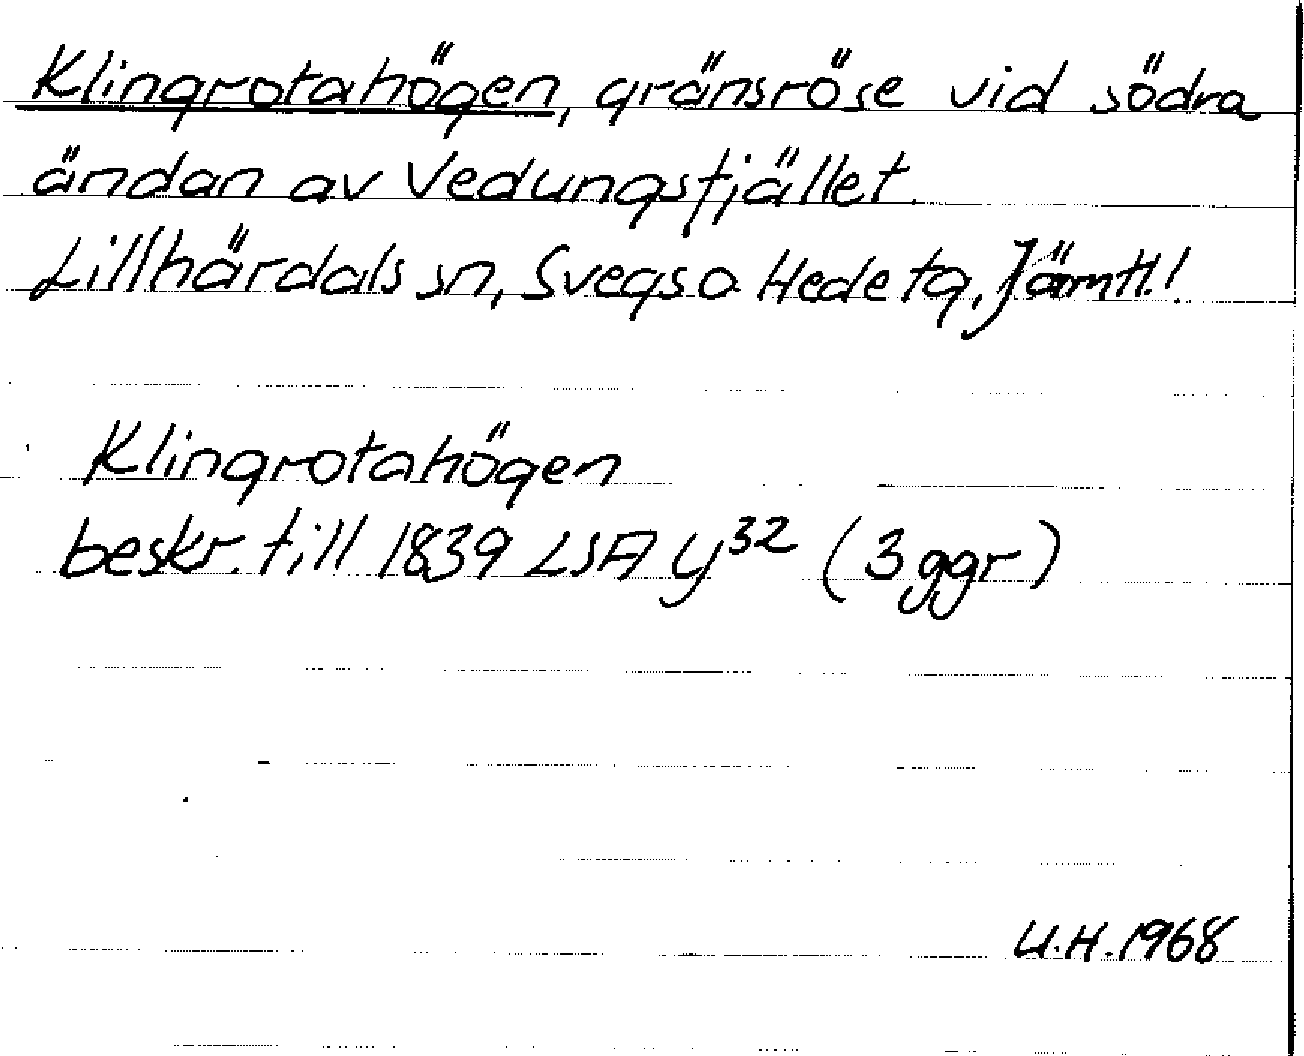 Klingrotahögen, gränsröse vid södra
ändan av Vedungsfjället.
Lillhärdals sn, Svegs o. Hede tg, Jämtl.!
Klingrotahögen
beskr. till 1839 LSA y32 (3 ggr)
U.H. 1968